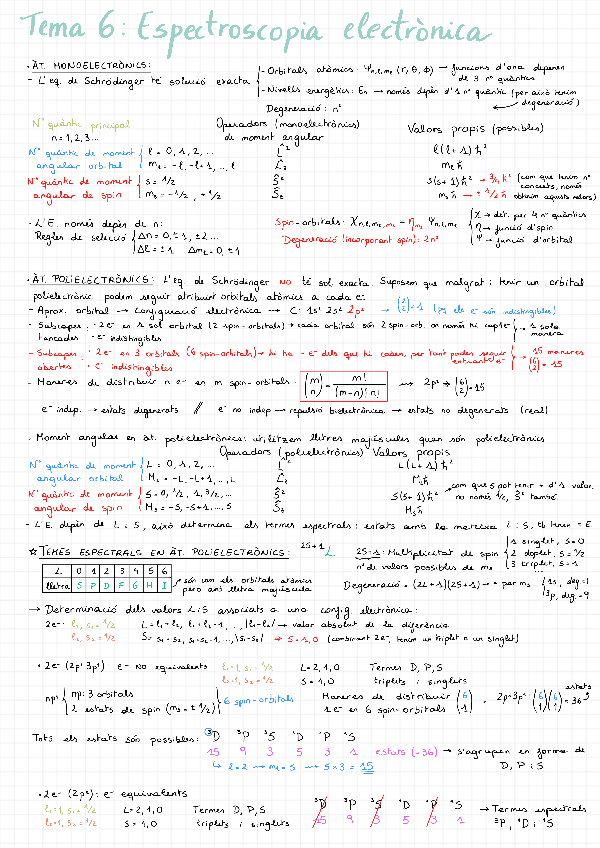 Tema 6: Espectroscopia electrònica
· ÀT. MONOELECTRÒNICS:
- L'eq. de Schrödinger té solució exacta
- Orbitals atòmics: Ψn,l,ml (r, θ, φ) → funcions d'ona depenen de 3 nº quàntics
- Nivells energètics: En → només depèn d'1 nº quàntic (per això tenim degeneració)
Degeneració: n²
Nº quàntic principal
n = 1, 2, 3...
Operadors (monoelectrònics) de moment angular
Valors propis (possibles)
Nº quàntic de moment angular orbital
l = 0, 1, 2, ...
ml = -l, -l+1, ..., l
L̂²
L̂z
l(l+1)ħ²
ml ħ
Nº quàntic de moment angular de spin
s = 1/2
ms = -1/2, +1/2
Ŝ²
Ŝz
s(s+1)ħ² → 3/4 ħ²
ms ħ → ± 1/2 ħ
(com que tenim nº concrets, només obtenim aquests valors)
- L'E. només depèn de n:
Regles de selecció
Δn = 0, ±1, ±2...
Δl = ±1 Δml = 0, ±1
Spin-orbitals: χn,l,ml,ms = ηms Ψn,l,ml
Degeneració (incorporant spin): 2n²
χ → det. per 4 nº quàntics
η → funció d'spin
Ψ → funció d'orbital
· ÀT. POLIELECTRÒNICS: L'eq. de Schrödinger NO té sol. exacta. Suposem que malgrat tenir un orbital
polielectrònic podem seguir atribuint orbitals atòmics a cada e⁻:
- Aprox. orbital → Configuració electrònica → C: 1s² 2s² 2p² → (2 2) = 1 (els e⁻ són indistingibles)
- Subcapes tancades
· 2e⁻ en 1 sol orbital (2 spin-orbitals) → cada orbital són 2 spin-orb. on només hi cap 1e⁻ → 1 sola manera
· e⁻ indistingibles
- Subcapes obertes
· 2e⁻ en 3 orbitals (6 spin-orbitals) → hi ha - e⁻ dels que hi caben, per tant poden seguir entrant e⁻ → 15 maneres (6 2) = 15
· e⁻ indistingibles
- Maneres de distribuir n e⁻ en m spin-orbitals: (m n) = m! / (m-n)! n! → 2p² → (6 2) = 15
e⁻ indep. → estats degenerats // e⁻ no indep → repulsió bielectrònica → estats no degenerats (real)
· Moment angular en àt. polielectrònics: utilitzem lletres majúscules quan són polielectrònics
Operadors (polielectrònics) Valors propis
Nº quàntic de moment angular orbital
L = 0, 1, 2, ...
ML = -L, -L+1, ..., L
L̂²
L̂z
L(L+1)ħ²
ML ħ
Nº quàntic de moment angular de spin
S = 0, 1/2, 1, 3/2, ...
MS = -S, -S+1, ..., S
Ŝ²
Ŝz
S(S+1)ħ²
MS ħ
com que S pot tenir + d'1 valor, no només 1/2, Ŝ² també.
- L'E. depèn de L i S, això determina els termes espectrals: estats amb la mateixa L i S, tb tenen = E.
☆ TERMES ESPECTRALS EN ÀT. POLIELECTRÒNICS: 2S+1 L
2S+1: Multiplicitat de spin
nº de valors possibles de ms
1 singlet, S=0
2 doplet, S=1/2
3 triplet, S=1
L 0 1 2 3 4 5 6
lletra S P D F G H I
són com els orbitals atòmics però amb lletra majúscula
Degeneració = (2L+1)(2S+1)
¹S, deg.=1
³P, deg.=9
→ Determinació dels valors L i S associats a una config. electrònica:
2e⁻: l1, s1 = 1/2
l2, s2 = 1/2
L = l1+l2, l1+l2-1, ..., |l1-l2| → valor absolut de la diferència
S = s1+s2, s1+s2-1, ..., |s1-s2| → S = 1, 0 (combinant 2e⁻, tenim un triplet o un singlet)
· 2e⁻ (2p¹ 3p¹) e⁻ no equivalents
l1=1, s1=1/2
l2=1, s2=1/2
L = 2, 1, 0 Termes D, P, S
S = 1, 0 triplets i singlets
np¹
np: 3 orbitals
2 estats de spin (ms = ±1/2)
6 spin-orbitals
Maneres de distribuir 1e⁻ en 6 spin-orbitals (6 1)
2p¹3p¹: (6 1)(6 1) = 36 estats
Tots els estats són possibles: ³D ³P ³S ¹D ¹P ¹S
15 9 3 5 3 1 estats (=36) → s'agrupen en forma de D, P i S
↳ L=2 → mL=5 → 5×3 = 15
· 2e⁻ (2p²): e⁻ equivalents
l1=1, s1=1/2
l2=1, s2=1/2
L = 2, 1, 0 Termes D, P, S
S = 1, 0 triplets i singlets
³D ³P ³S ¹D ¹P ¹S
15 9 3 5 3 1
→ Termes espectrals ³P, ¹D i ¹S